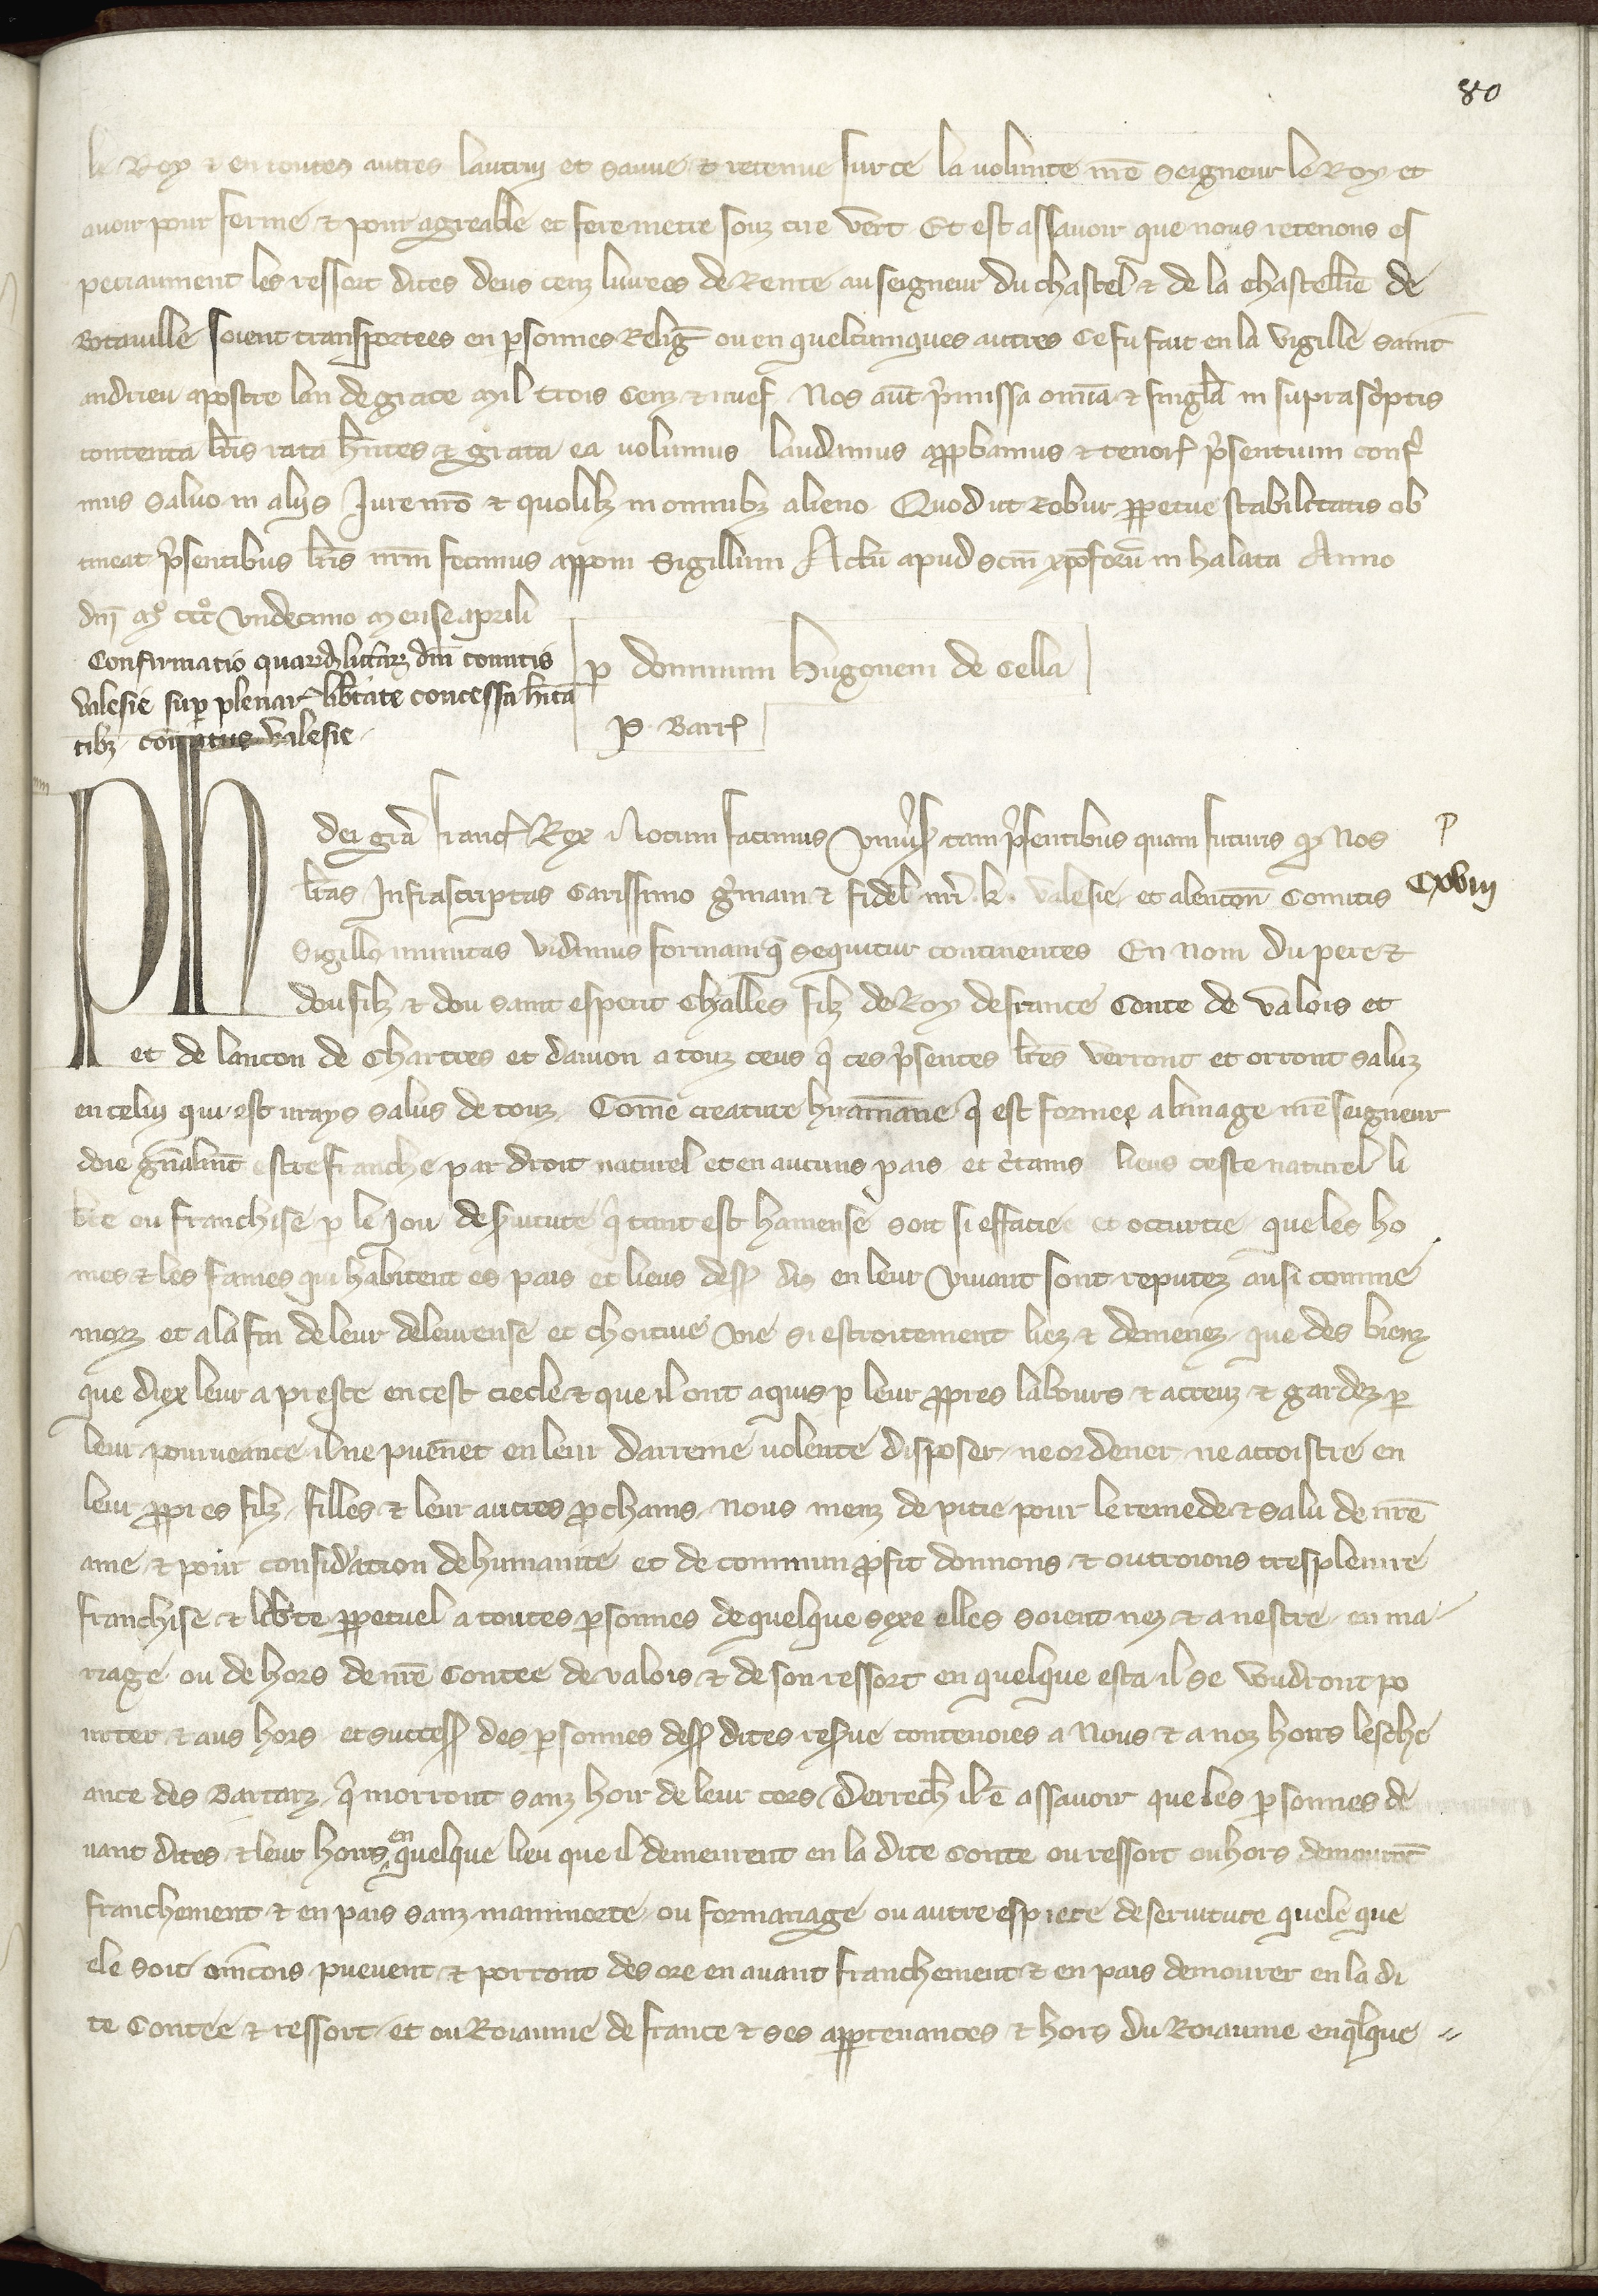 80
le Roy & en toutes autres lautruy et sauve & retenue sur ce la volunte nr̄e seigneur le Roy et
avoir pour ferme & pour agreable et fere metre souz cire vert Et est assavoir que nous retenons es
peciaument les ressort dites deus cenz livrees de Rente au seigneur du chastel & de la chastelle͞ie de
Botaville soient transportees en ꝑsonnes Reliḡ ou en quelcumques autres Ce fu fait en la vigille saint
andrieu apostre lan de grace mil trois cenz & nuef Nos aūt p̓missa om̄ia & singl̄a in suprasc̓ptis
contenta l̄ris rata h̄ntes & grata ea volumus laudamus app̱bamus & tenor̄ p̓sentium conf̓
mus salvo in aliis Jure nr̄o & quolibꝫ in omnibꝫ alieno Quod ut Robur ꝑpetue stabilitatis ob
tineat p̓sentibus l̄ris nr̄m fecimus apponi Sigillum Actū apud sc̄m xp̄oforū in halata Anno
dn̄i mͦ cccͦ undecimo mense aprili
Confirmatio quarūdꝫ litterarꝫ dn̄i comitis
Valesie suꝑ plenar̄ lib̄tate concessa hīta
tibꝫ comitatus Valesie
ꝑ dominum hugonem de Cella
P. Barr̄
Ph
dei gr̄a franc̄ Rex Notum facimus Univ̓sꝭ tam p̓sentibus quam futuris qꝫ Nos
P
l̄ras Infrascriptas Carissimo g̓mani & fidel̄ nr̄i .k. Valesie et alencon̄ Comitis
Cxviii
Sigillo munitas vidimus formam q̓ sequitur continentes En nom du pere &
dou filz & dou saint esperit Challes filz de Roy de france Conte de valois et
et de lancon de Chartres et daniou a touz ceus q̓ ces p̓sentes l̄res verront et orront saluz
en celui qui est vrays salus de touz Com̄e creature humāine q̓ est formee a limage nr̄e seigneur
doie gn̄alm̄t estre franche par droit naturel et en aucuns pais et c̓tains lieus ceste naturel li
b̄te ou franchise ꝑ le Jou de ẜvitute q̓ tant est haineuse soit si effacie et occurcie que les ho
mes & les fames qui habitent es pais et lieus dess̄ dis en leur vivant sont reputez ausi comme
morz et a la fin de leur doleireuse et choitive vie si estroitement liez & demenez que des bienz
que diex leur a preste en cest ciecle & que il ont aquis ꝑ leur ꝓpres labours & acreuz & gardez ꝑ
leur pourveance il ne puen̄et en leur darreine volente disposer ne ordener ne accoistre en
leur ꝓpres filz filles & leur autres ꝓchains Nous menz de pitie pour le remede & salu de nr̄e
ame & pour consid̓ation de humanite et de commun ꝓfit donnons & outroions tresplenire
franchise & lib̄te ꝑpetuel a toutes ꝑsonnes de quelque sexe elles soient nez & a nestre en ma
riage ou dehors de nr̄e Contee de valois & de son ressort en quelque esta il se voudront po
urter & aus hors et success̄ des ꝑsonnes dess̄ dites reẜve contenoies a Nous & a noz hoirs lesche
ance des Bartarz q̓ morront sanz hoir de leur cors Derrech̄ il ē assavoir que les ꝑsonnes de
vant dites & leur hoirs en quelque lieu que il demeurent en la dite conte ou ressort ou hors demourr̄ōt
franchement & en pais sanz mainmorte ou formariage ou autre espiece de servitute quele que
ele soit aincois puevent & porront des ore en avant franchement & en pais demourer en la di
te Contee & ressort et ou Roiaume de france & ses apꝑtenances & hors du Roiaume en q̄lque